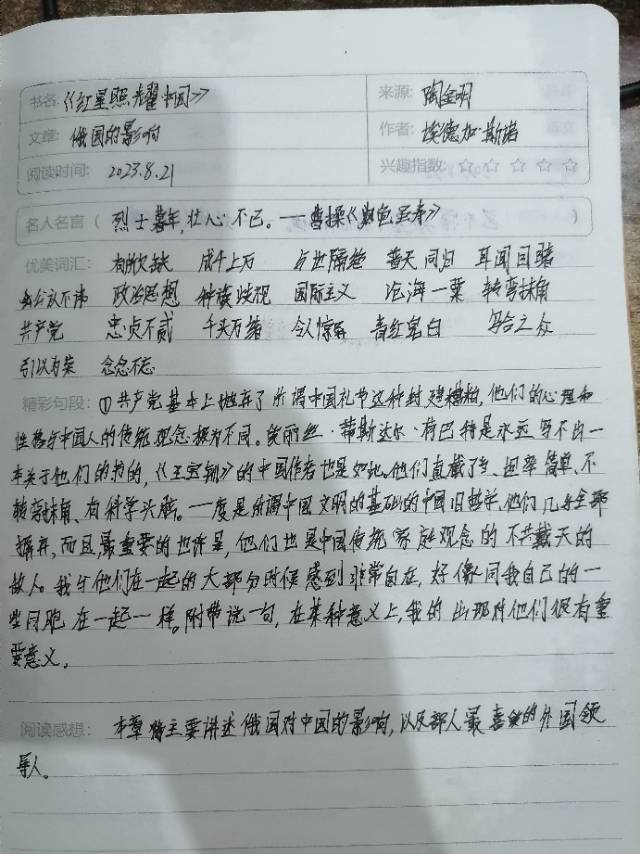 书名:《红星照耀中国》 来源: 陶金玥
文章: 俄国的影响 作者: 埃德加·斯诺
阅读时间: 2023.8.21 兴趣指数: ☆ ☆ ☆ ☆ ☆
名人名言 ( 烈士暮年,壮心不已。——曹操《龟虽寿》 )
优美词汇: 成千上万 与世隔绝 普天同归 耳闻目睹
政治思想 种族歧视 国际主义 沧海一粟 转弯抹角
共产党 忠贞不贰 千头万绪 令人惊异 青红皂白 乌合之众
引以为荣 念念不忘
精彩句段: ①共产党基本上抛弃了所谓中国礼节这种封建糟粕,他们的心理和
性格与中国人的传统观念极为不同。爱丽丝·蒂斯达尔·荷巴特是永远写不出一
本关于他们的书的,《王宝钏》的中国作者也是如此。他们直截了当、坦率简单、不
转弯抹角、有科学头脑。一度是所谓中国文明的基础的中国旧哲学,他们几乎全部
摒弃,而且最重要的也许是,他们也是中国传统家庭观念的不共戴天的
敌人。我与他们在一起的大部分时候感到非常自在,好像同我自己的一
些同胞在一起一样。附带说一句,在某种意义上,我的出现对他们很有重
要意义。
阅读感想: 本章将主要讲述俄国对中国的影响,以及部人最喜爱的外国领
导人。